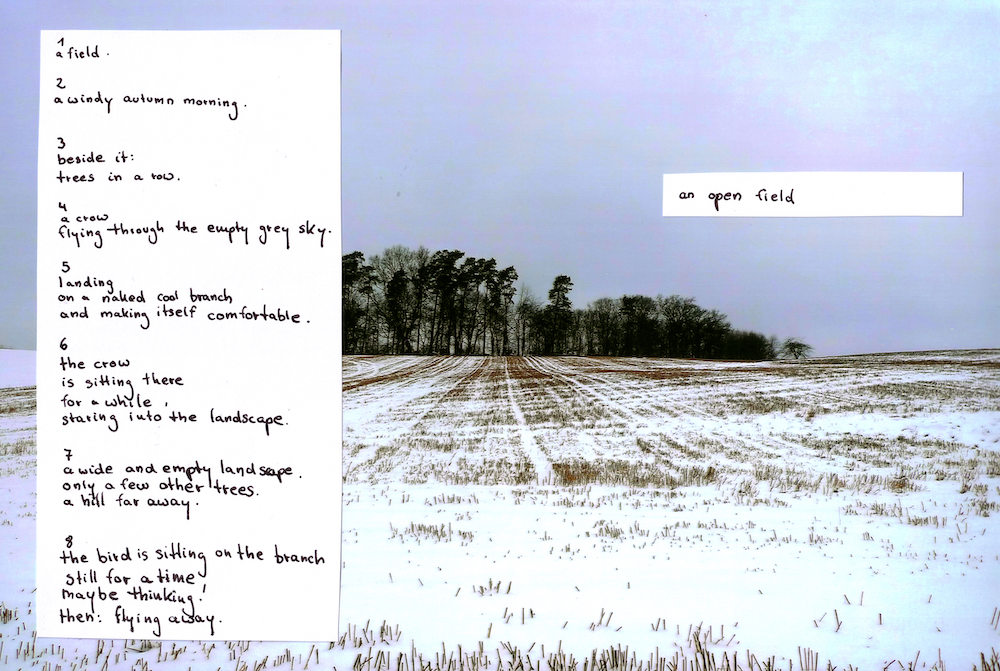 1
a field.
2
a windy autumn morning.
3
beside it:
trees in a row.
4
a crow
flying through the empty grey sky.
5
landing
on a naked cool branch
and making itself comfortable.
6
the crow
is sitting there
for a while,
staring into the landscape.
7
a wide and empty landscape.
only a few other trees.
a hill far away.
8
the bird is sitting on the branch
still for a time
maybe thinking!
then: flying away.
an open field